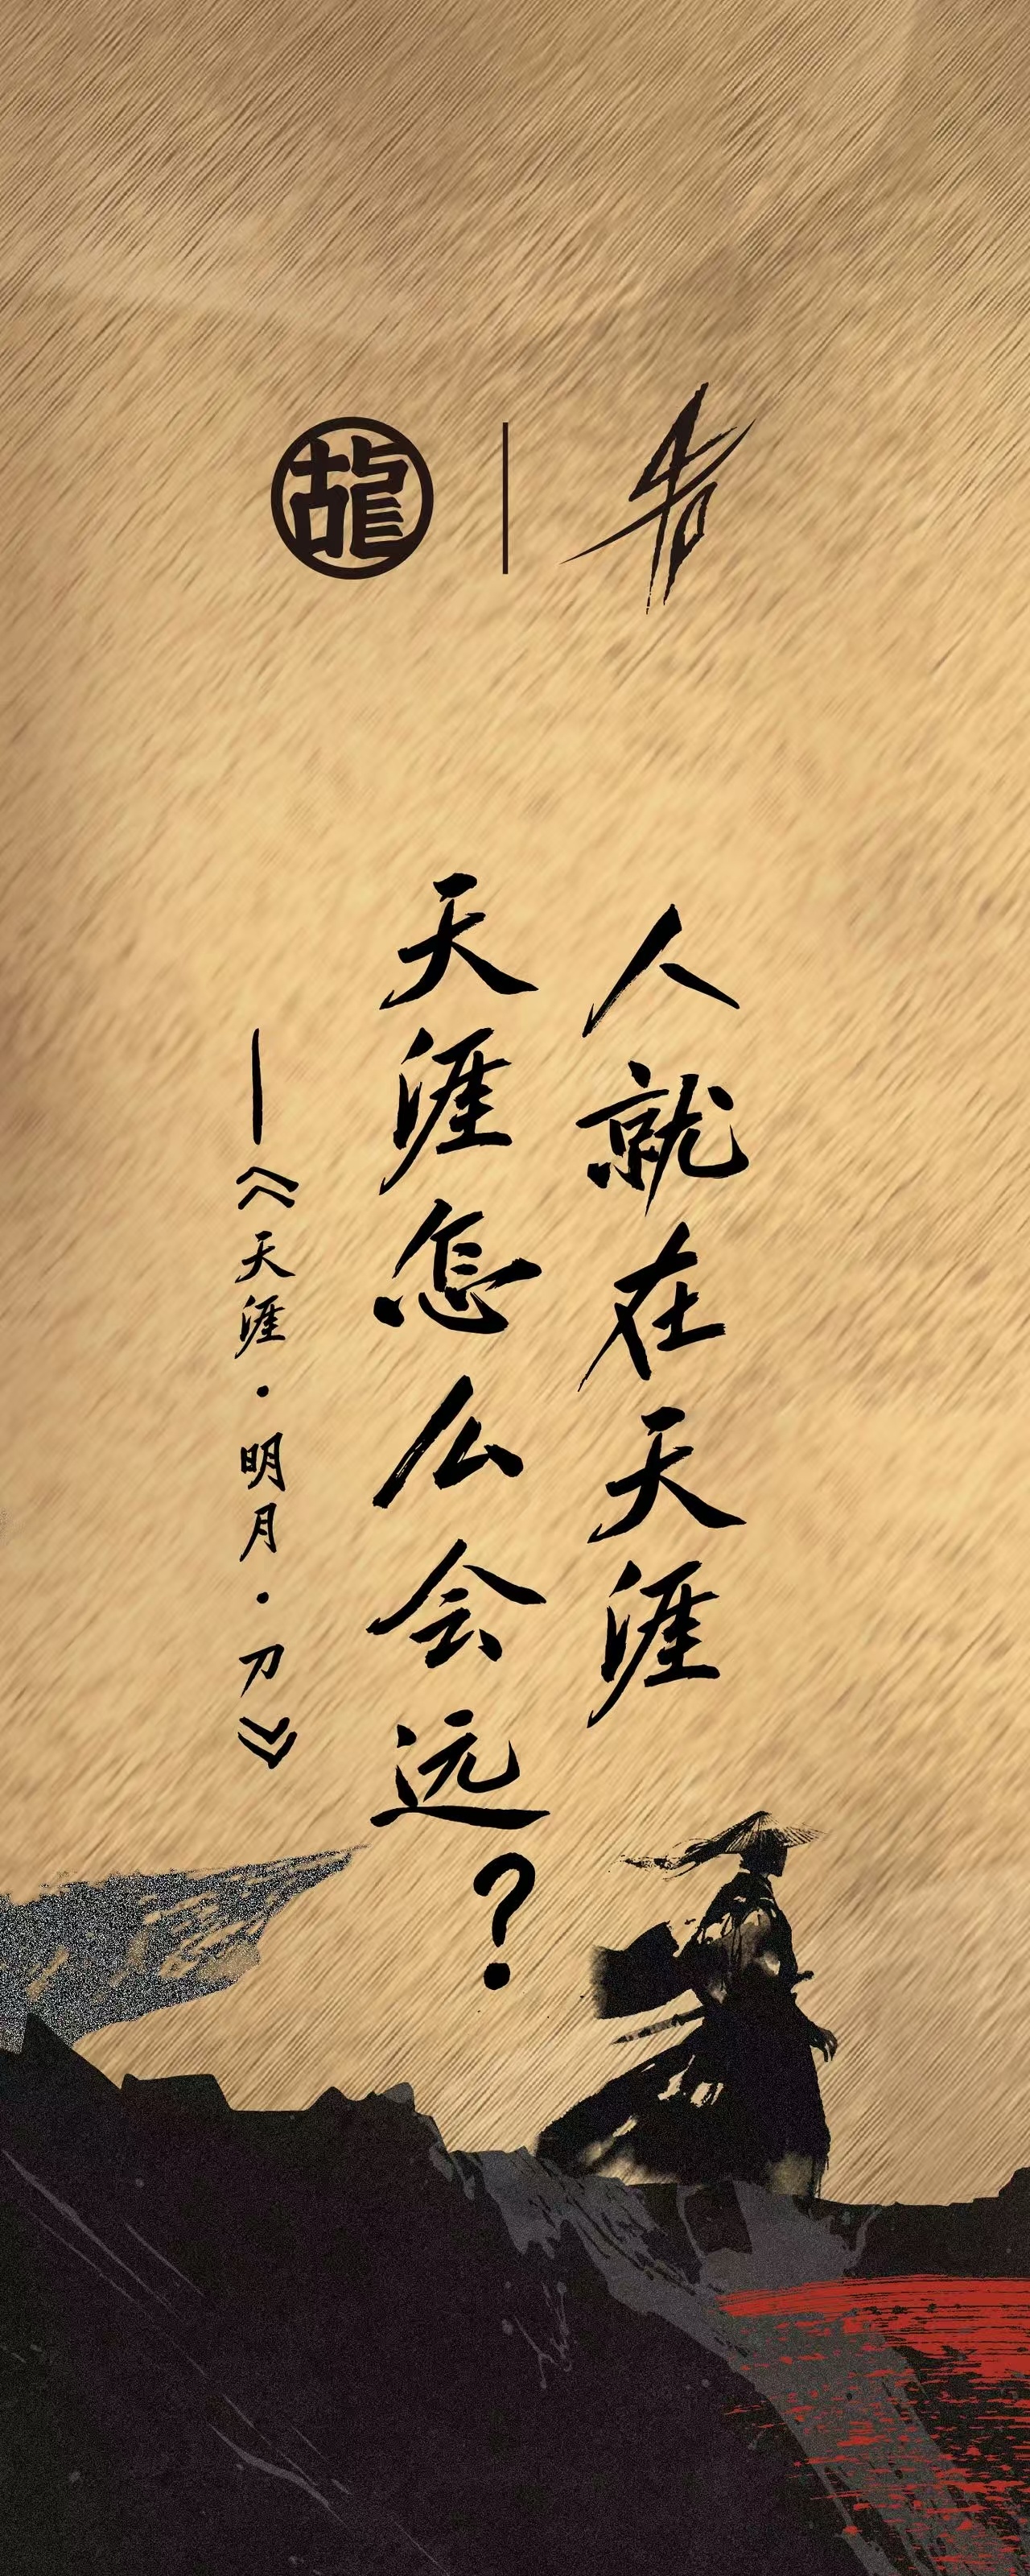 人就在天涯
天涯怎么会远?
—《天涯·明月·刀》